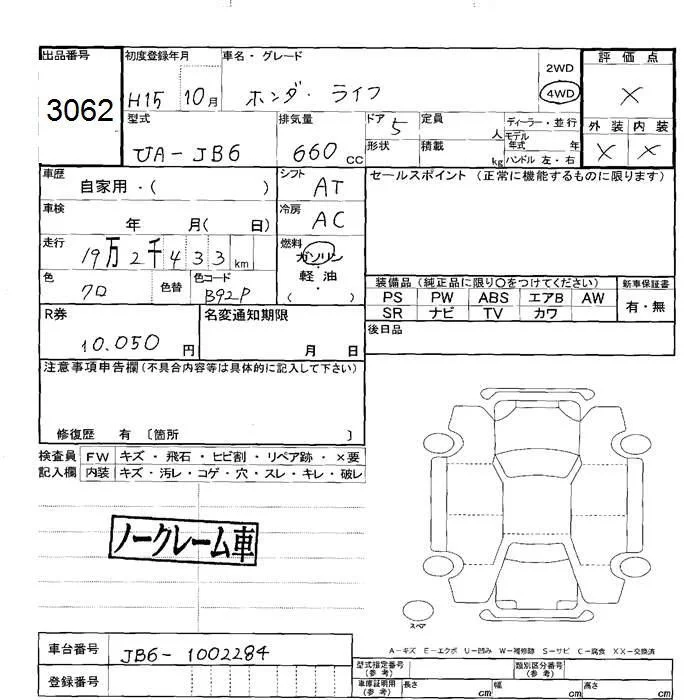 出品番号 初度登録年月 車名・グレード 2WD 評価点
3062 H15 10月 ホンダ・ライフ 4WD ×
型式 排気量 ドア 5 定員 人 ディーラー・並行 外装 内装
UA-JB6 660 CC 形状 積載 kg モデル年式 年 ハンドル 左・右 × ×
車歴 シフト セールスポイント (正常に機能するものに限ります)
自家用・( ) AT
車検 冷房
年 月( 日) AC
走行 燃料
19万2千433km ガソリン
色 色替 色コード 軽油 装備品 (純正品に限り○をつけてください) 新車保証書
クロ B92P ( ) PS PW ABS エアB AW 有・無
R券 名変通知期限 SR ナビ TV カワ
10.050 円 月 日 後日品
注意事項申告欄(不具合内容等は具体的に記入して下さい)
修復歴 有 〔箇所 〕
検査員 FW キズ・飛石・ヒビ割・リペア跡・×要
記入欄 内装 キズ・汚レ・コゲ・穴・スレ・キレ・破レ
ノークレーム車
スペア
A-キズ E-エクボ U-凹み W-補修跡 S-サビ C-腐食 XX-交換済
車台番号 JB6-1002284 型式指定番号(参考) 類別区分番号(参考)
登録番号 車庫証明用(参考) 長さ cm 幅 cm 高さ cm